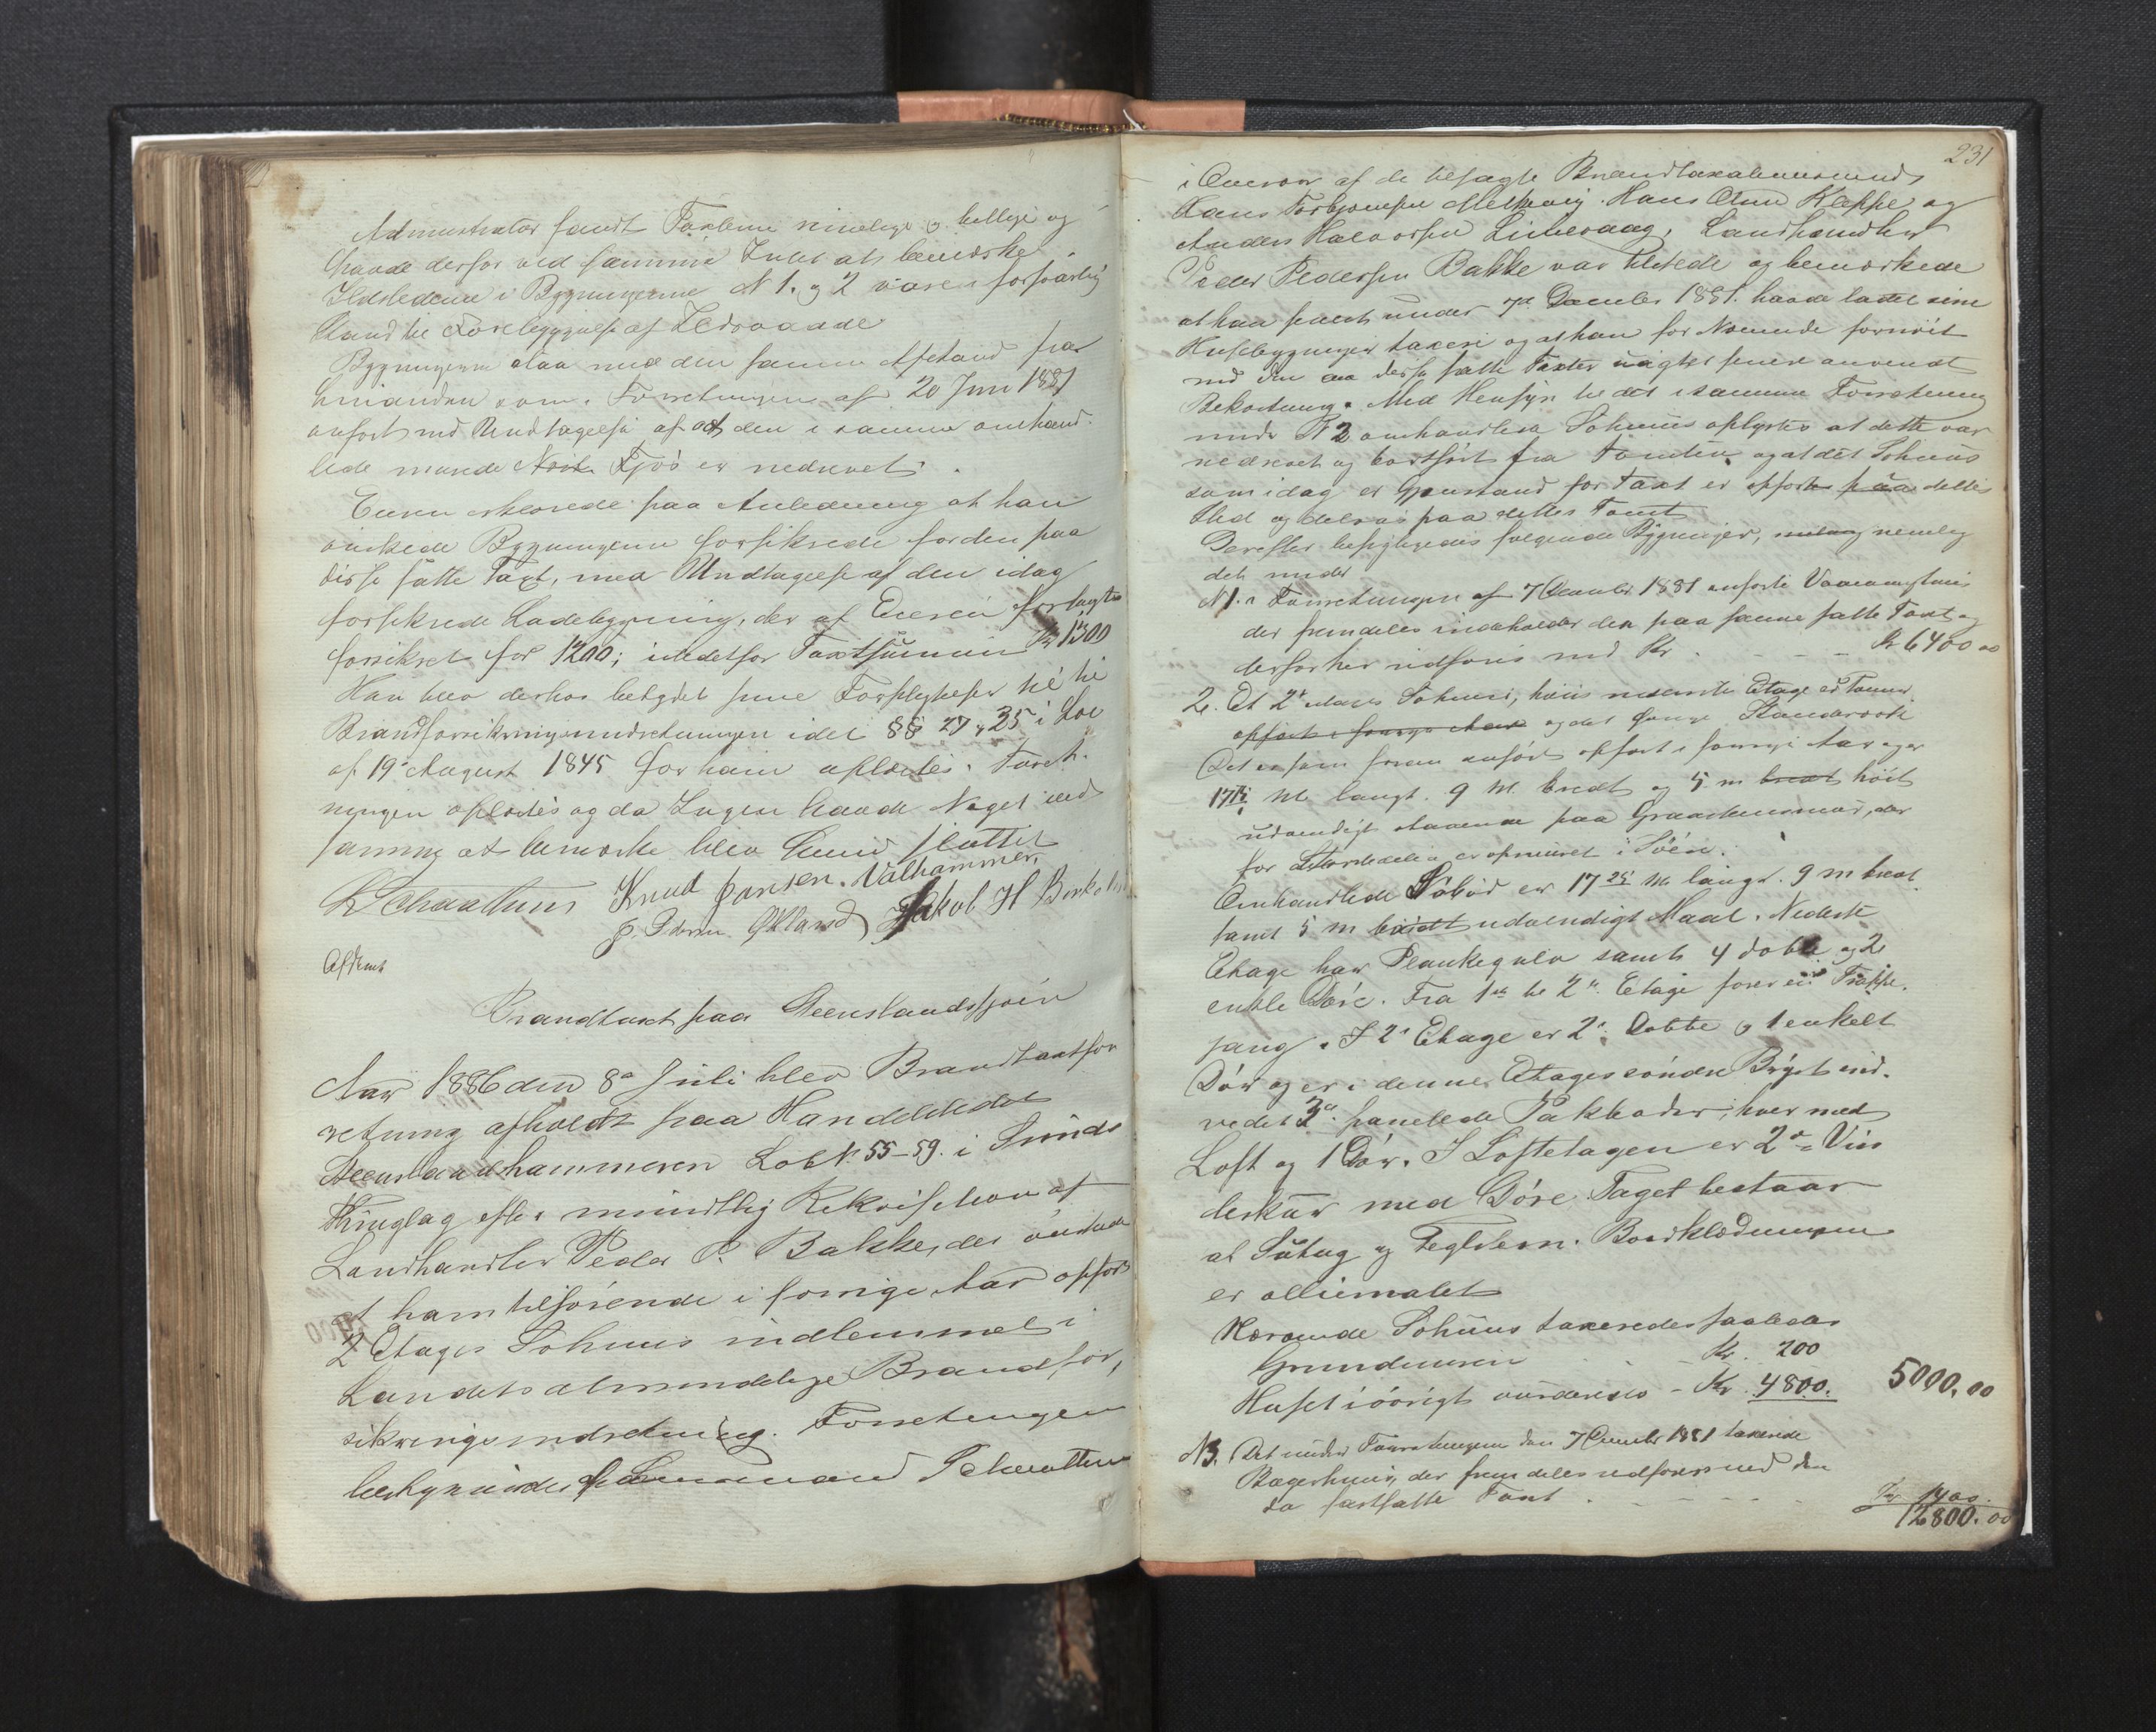 Administrator fandt Taxterne rimelige og billige og
havde derfor ved samme Intet at bemærke
Ildstederne i Bygningerne N 1. og 2 vare i forsvarlig
Stand til Forebyggelse af Ildsvaade
Bygningerne staa med den samme Afstand fra
hinanden som i Forretningen af 20 Juni 1881
anført med Undtagelse af at den i samme omhand-
lede murede Fjøs er nedrevet.
Eieren erklærede paa Anledning at han
ønskede Bygningerne forsikrede for den paa
disse satte Taxt, med Undtagelse af den idag
forsikrede Ladebygning, der af Eieren forlagtes
forsikret for 1200; istedetfor Taxtsummen Kr 1300
Han blev derhos betydet sine Forpligtelser til
Brandforsikringsindretningen idet §§ 27 og 35 i Lov
af 19 August 1845 for ham oplæstes. Forret-
ningen oplæstes og da Ingen havde Noget ved
samme at bemærke blev denne sluttet
Knud Jansen. Valhammer.
J. Pedersen Økland Jakob H
Afskrevet
Brandtaxt paa Steenslandssjøen
Aar 1886 den 8de Juli blev Brandtaxtfor
retning afholdt paa Handelsstedet
Steenslandhammeren Lob N. 55-59. i Finds
Thinglag efter mundtlig Rekvisition af
Landhandler Peder P. Bakke, der ønskede
et ham tilhørende i forrige Aar opført
2 Etages Søhuus indlemmet i
Landets almindelige Brandfor,
sikringsindretning. Forretningen
beskyndes af Lensmand
231
i Overvær af de besagte Brandtaxationsmænd
Hans Torbjørnsen Hans Olsen Kleppe og
Anders Halvorsen Landhandler
Peder Pedersen Bakke var tilstede og bemærkede
at han sidst under 7de December 1881. havde ladet sine
Huusbygninger taxere og at han for Nærværende fornøiet
med den paa disse satte Taxter uagtet senere anvendt
Bekostning. Med Hensyn til det i samme Forretning
under N 2 omhandlede Søhuus oplystes at dette var
nedrevet og bortført fra Tomten og at det Søhuus
som idag er Gjenstand for Taxt er opført paa dettes
Sted og delvis paa dettes Tomt
Derefter besigtigedes følgende Bygninger, nemlig
det under
N 1. i Forretningen af 7 December 1881 anførte Vaaningshuus
der fremdeles indeholder den paa samme satte Taxt og
derfor her udføres med Kr. - - - Kr 6400 00
2. Et 2 etages Søhuus, hvis nederste Etage er Tømmer
opført i forrige Aar og det øvrige Standerværk
Det er som foran anført opført i forrige Aar og er
17 25 M. langt. 9 M. bredt og 5 m bredt høit
udvendigt staaende paa Graasteensmuur, der
for Størstedelen er opmuret i Søen.
Omhandlede Søbod er 17 25 M langt. 9 m bredt
samt 5 m udvendigt Maal. Nederste
Etage har Plankegulv samt 4 doble og 2
enkle Døre. Fra 1ste til 2den Etage fører en Trappe-
gang. I 2den Etage er 2 Dobbe og 1 enkelt
Dør og er i denne Etages søndre Bryst ind-
redet 3 panelede Pakboder, hver med
Loft og 1 Dør. I Loftetagen er 2de Vin
deskur med Døre. Taget bestaar
af Sutag og Teglsteen. Bordklædningen
er oliemalet
Nærværende Søhuus taxeredes saaledes
Grundmuren - Kr. 200
Huset iøvrigt vurderedes - Kr. 4800. 5000.00
N3. Det under Forretningen den 7 December 1881 taxerede
Bagerhuus, der fremdeles udføres med den
da fastsatte Taxt. - - - - 1400.
12800.00